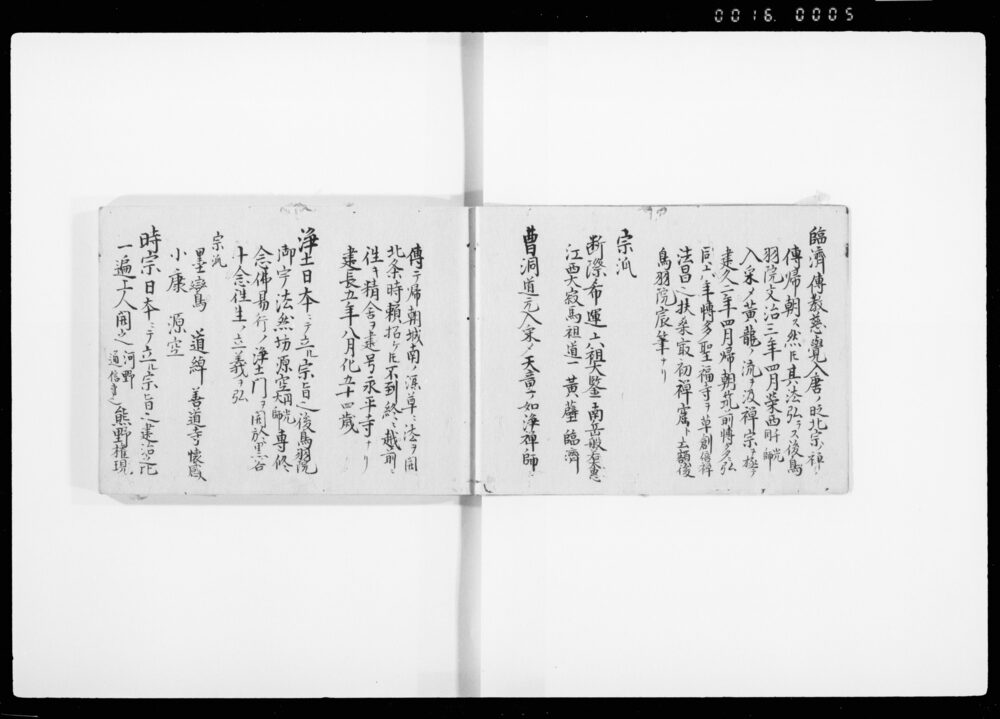 0016.0005
臨濟傳教慈覺入唐ノ砌北宗ノ禅ヲ
傳帰朝ス然ㇳ𪜈其法弘ラス後鳥
羽院文治三年四月栄西明师
入宋メ黄龍ノ流ヲ汲禅宗ヲ極テ
建久二年四月帰朝筑前博多弘
同六年博多聖福寺ヲ草創
法昌ㇾ扶桑最初禅窟ト云額後
鳥羽院宸筆ナリ
宗派
断際希運六祖大鑒南岳般若
江西大寂馬祖道一黄蘗臨濟
曹洞道元入宋メ天童ノ如浄禅師
傳ヘテ帰朝城南ノ深草ニ法ヲ開
北条時頼招ケ𪜈不到終ニ越前ニ
往キ精舎ヲ建号永平寺ナリ
建長五年八月化五十四歳
浄土日本ニテ立ル宗旨也後鳥羽院
御宇法然坊源空専修
念佛易行ノ浄土門ヲ開於黒谷
十念往生ノ立義ヲ弘
宗派
曇鸞 道綽 善道寺懐感
小康 源空
時宗日本ニテ立ル宗旨也建治比
一遍上人開之 河野 通信孫也 熊野権現